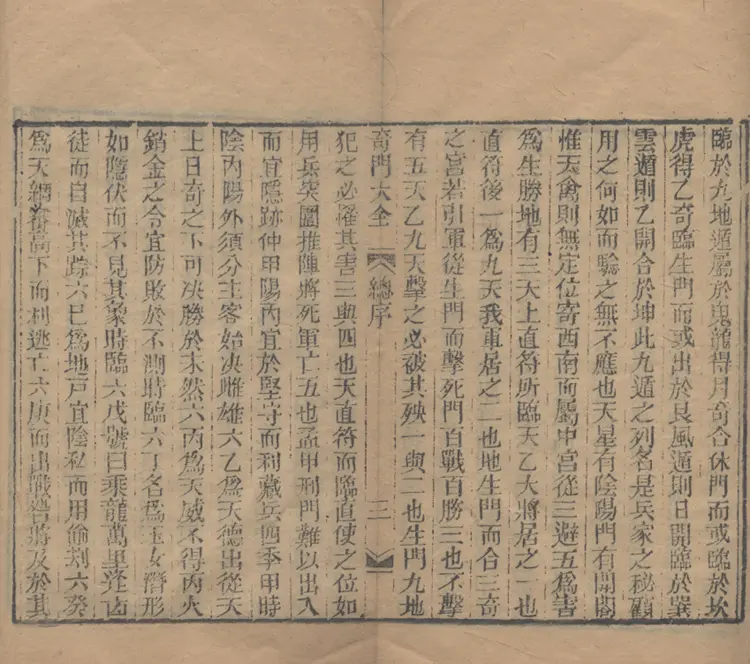 臨於九地遁屬於鬼龍得月奇合休門而或臨於坎
虎得乙奇臨生門而或出於艮風遁則日開臨於巽
雲遁則乙開合於坤此九遁之列名是兵家之秘顧
用之何如而驗之無不應也天星有陰陽門有開闔
惟天禽則無定位寄西南而屬中宮從三避五為害
為生勝地有三大上直符所臨天乙大將居之一也
直符後一為九天我軍居之二也地生門而合三奇
之宮若引軍從生門而擊死門百戰百勝三也不擊
有五天乙九天擊之必破其殃一與二也生門九地
奇門大全 總序 三
犯之必罹其害三與四也天直符而臨直使之位如
用兵突圍推陣將死軍亡五也孟甲刑門難以出入
而宜隱跡仲甲陽內宜於堅守而利藏兵四季甲時
陰內陽外須分主客始决雌雄六乙為天德出從天
上日奇之下可决勝於未然六丙為天威不得丙火
銷金之令宜防敗於不測時臨六丁名為玉女潛形
如隱伏而不見其象時臨六戊號曰乘龍萬里從
徒而自滅其踪六巳為地戸宜陰私而用偷刦六癸
為天綱看高下而利逃亡六庚而出戰咎將及於其